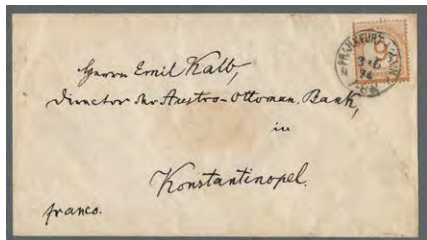 FRANKFURT A/MAIN
74
Herrn Emil Kalb,
Director der Austro-Ottoman. Bank,
in
Konstantinopel.
franco.